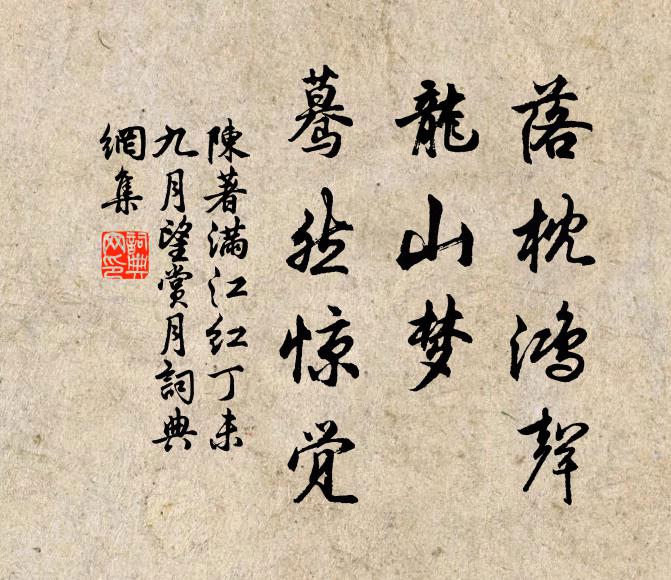 落枕鸿聲
龍山梦
驀然惊觉
陳著满江红丁未
九月望賞月詞典
網集
詞典
网印